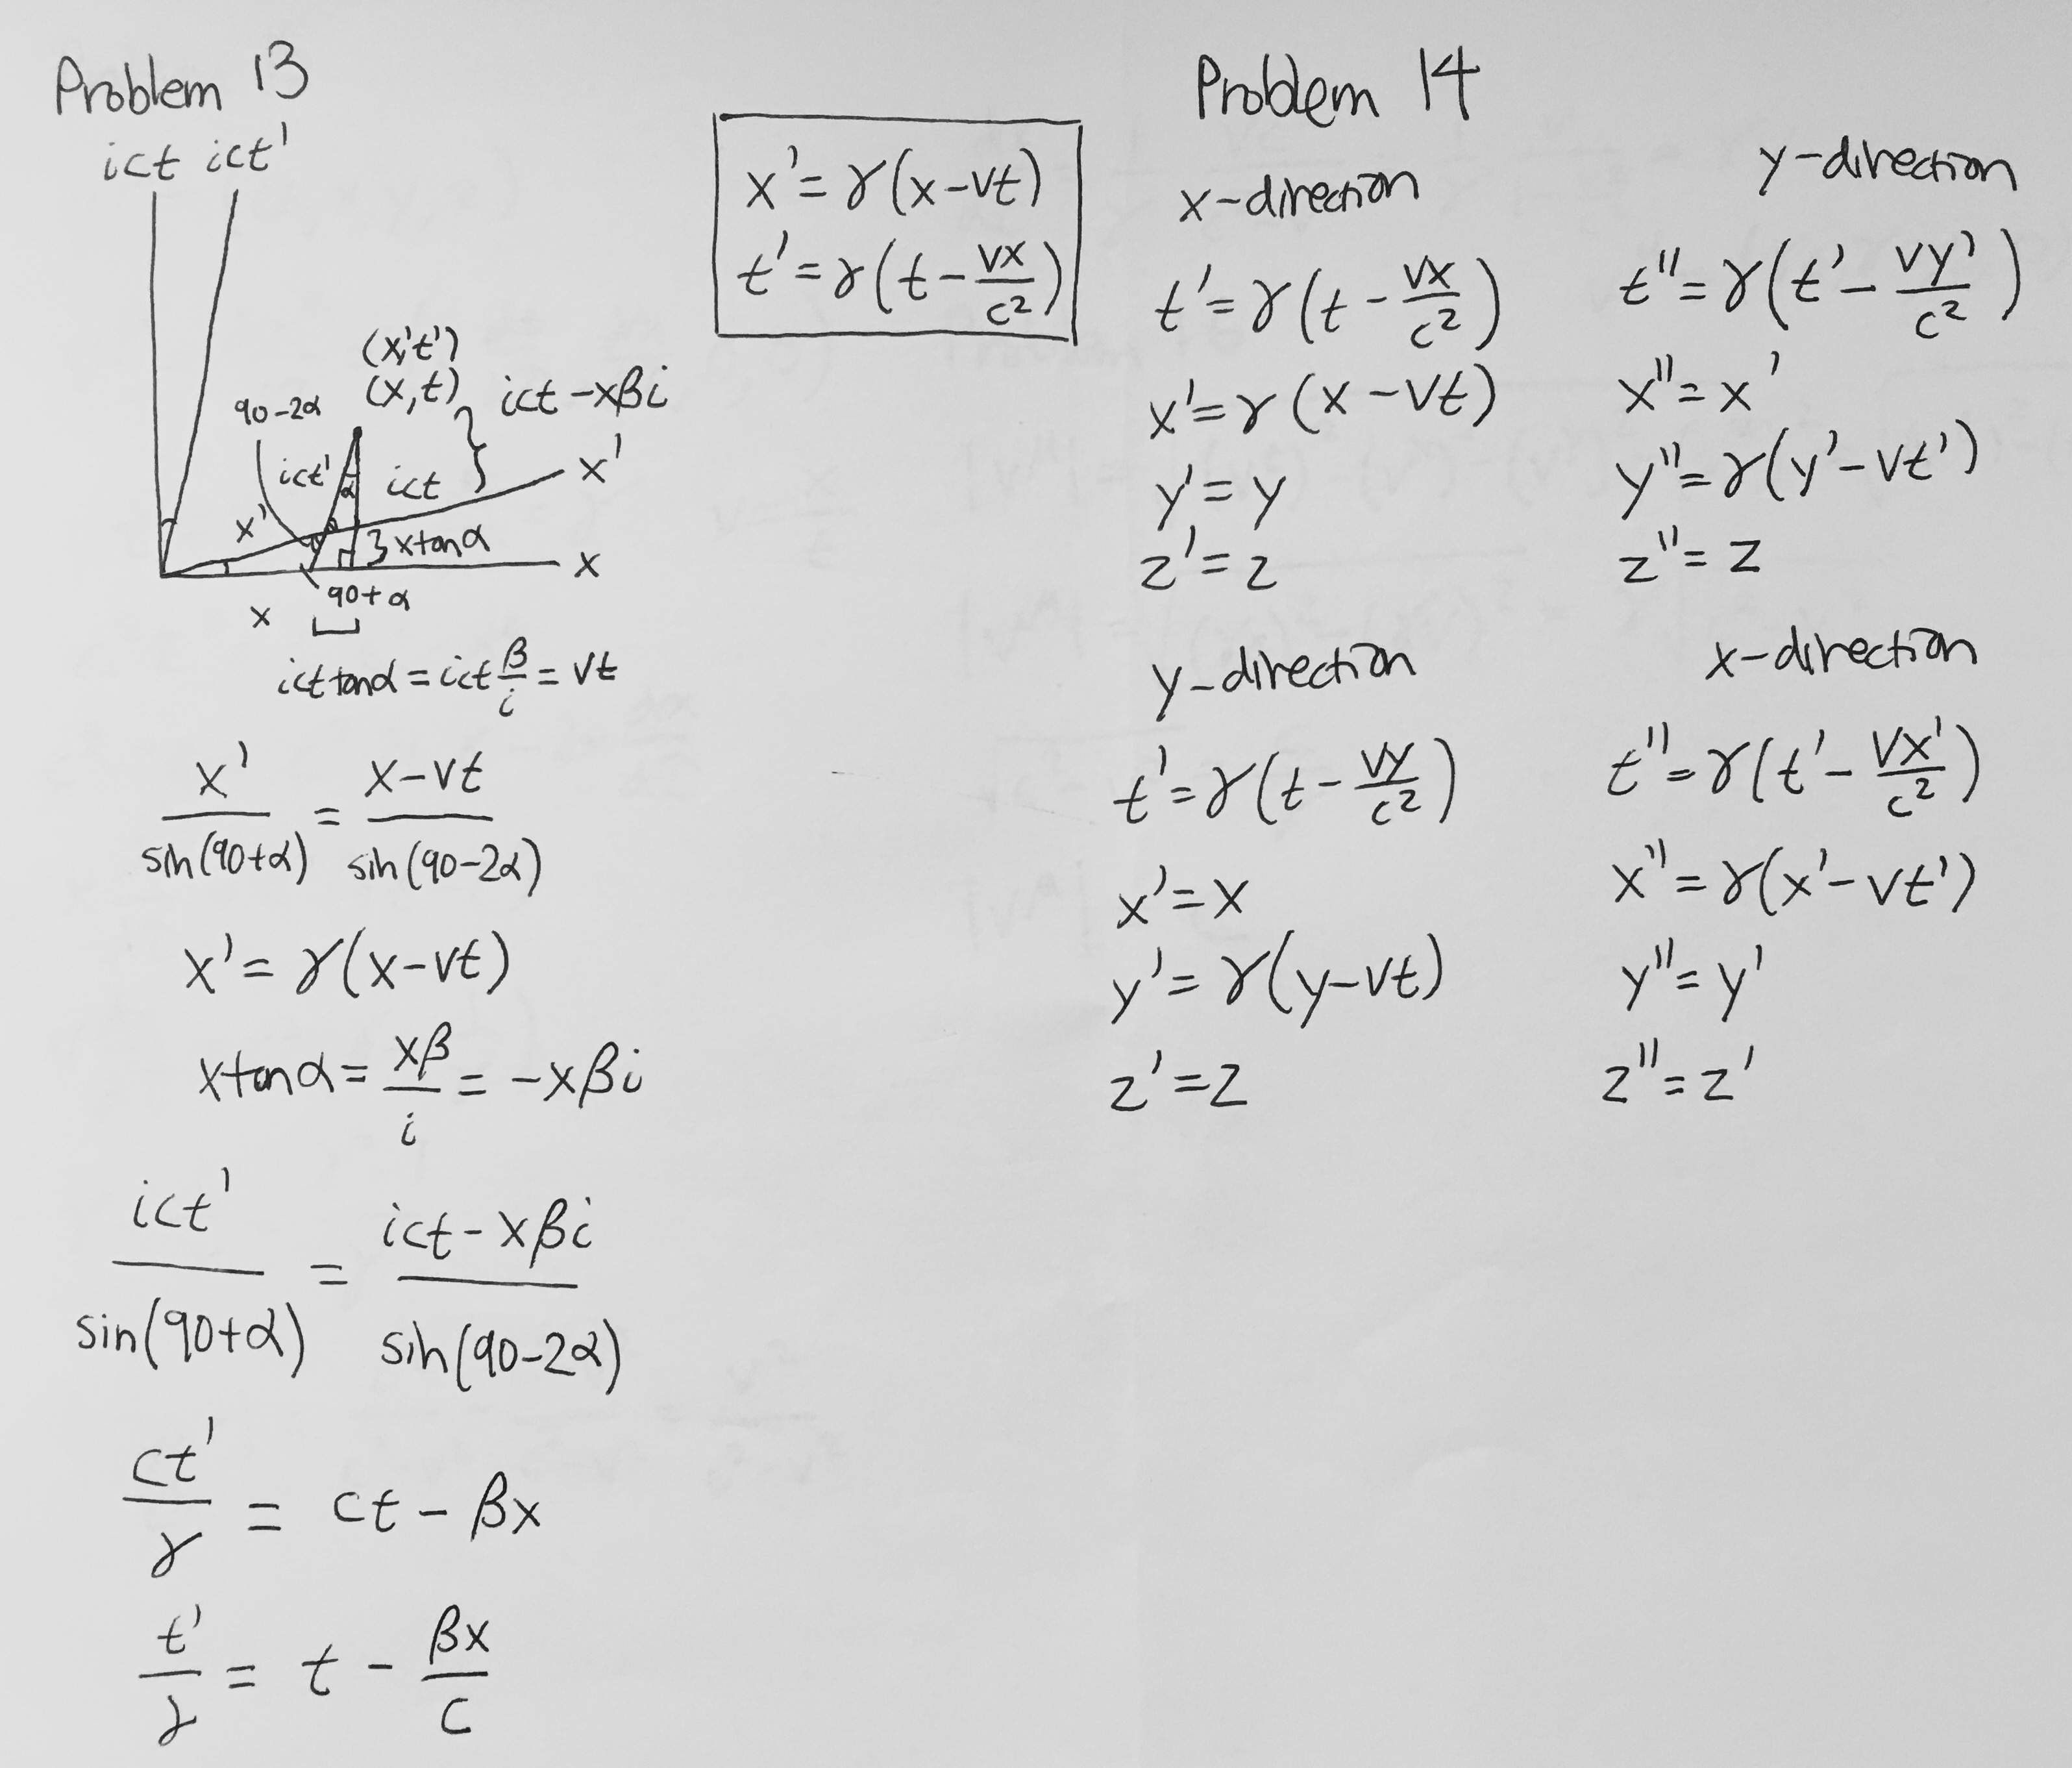 Problem 13
ict ict'
(x,'t')
(x,t)
ict-xβi
90-2α
ict'
α
ict
x'
x'
3 xtanα
x
90+α
x
ict tanα = ict β/i = vt
x'/sin(90+α) = x-vt/sin(90-2α)
x' = γ(x-vt)
xtanα = xβ/i = -xβi
ict'/sin(90+α) = ict-xβi/sin(90-2α)
ct'/γ = ct-βx
t'/γ = t - βx/c
x' = γ(x-vt)
t' = γ(t - vx/c²)
Problem 14
x-direction
t' = γ(t - vx/c²)
x' = γ(x-vt)
y' = y
z' = z
y-direction
t'' = γ(t' - vy'/c²)
x'' = x'
y'' = γ(y'-vt')
z'' = z
y-direction
t' = γ(t - vy/c²)
x' = x
y' = γ(y-vt)
z' = z
x-direction
t'' = γ(t' - vx'/c²)
x'' = γ(x'-vt')
y'' = y'
z'' = z'